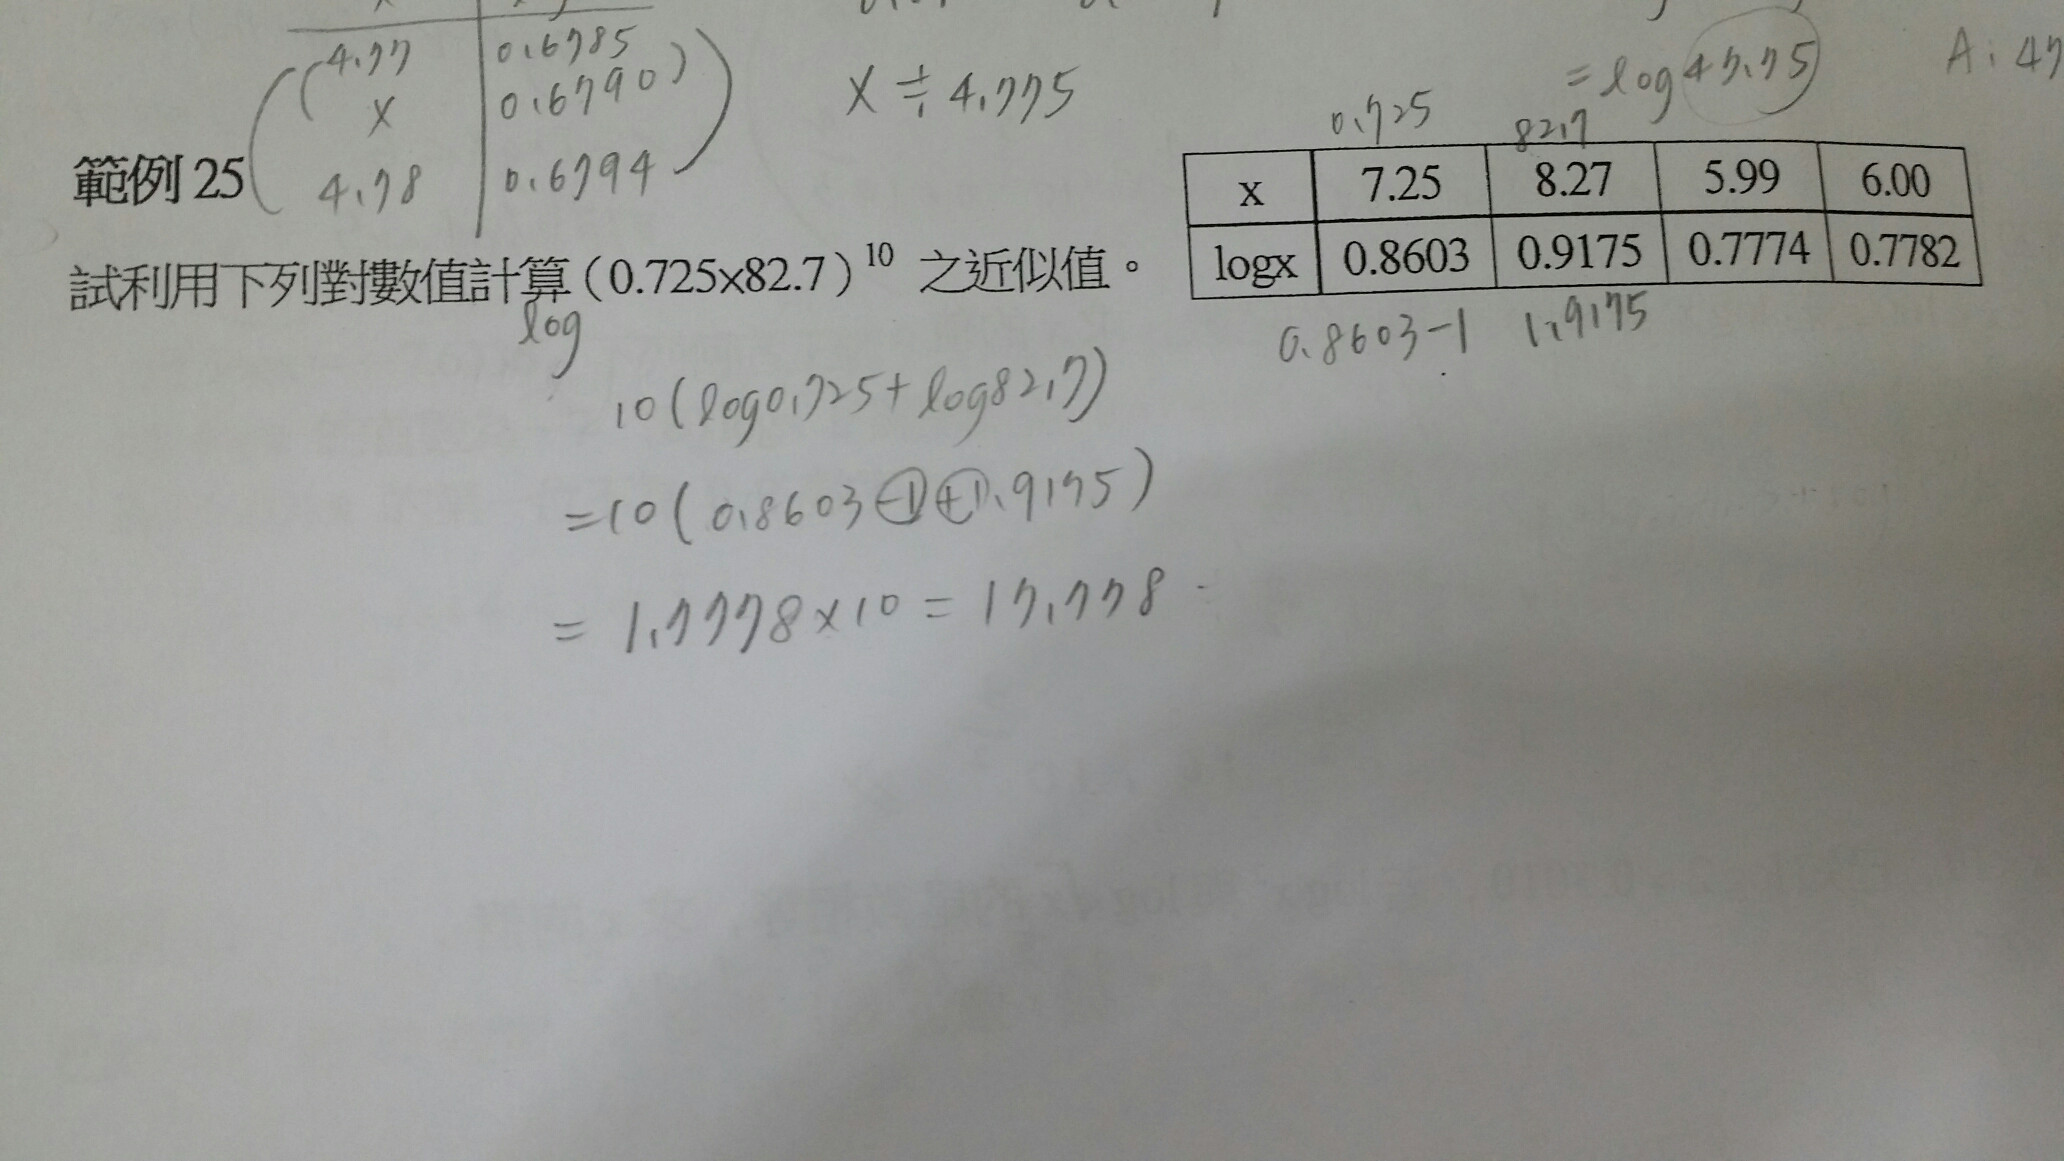 4.77 0.6785
x 0.6790
4.78 0.6794
x ≑ 4.775
= log 47.75 A: 47
範例 25
0.725 82.7
x 7.25 8.27 5.99 6.00
logx 0.8603 0.9175 0.7774 0.7782
0.8603-1 1.9175
試利用下列對數值計算(0.725x82.7)¹⁰ 之近似值。
log
10(log0.725+log82.7)
=10(0.8603-1+1.9175)
= 1.7778×10 = 17.778